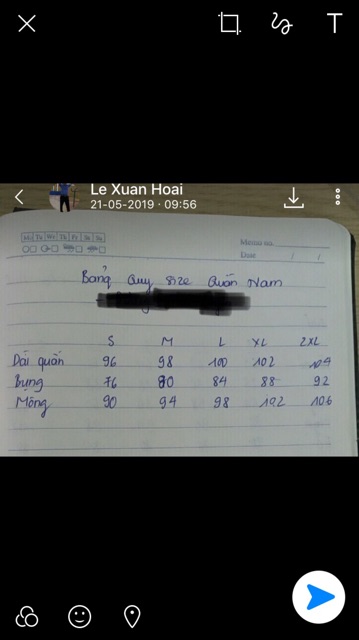 T
Le Xuan Hoai
21-05-2019 · 09:56
Mo Tu We Th Fr Sa Su
Memo no.
Date / /
Bảng Quy size Quần Nam
S M L XL 2XL
Dài quần 96 98 100 102 104
Bụng 76 80 84 88 92
Mông 90 94 98 102 106